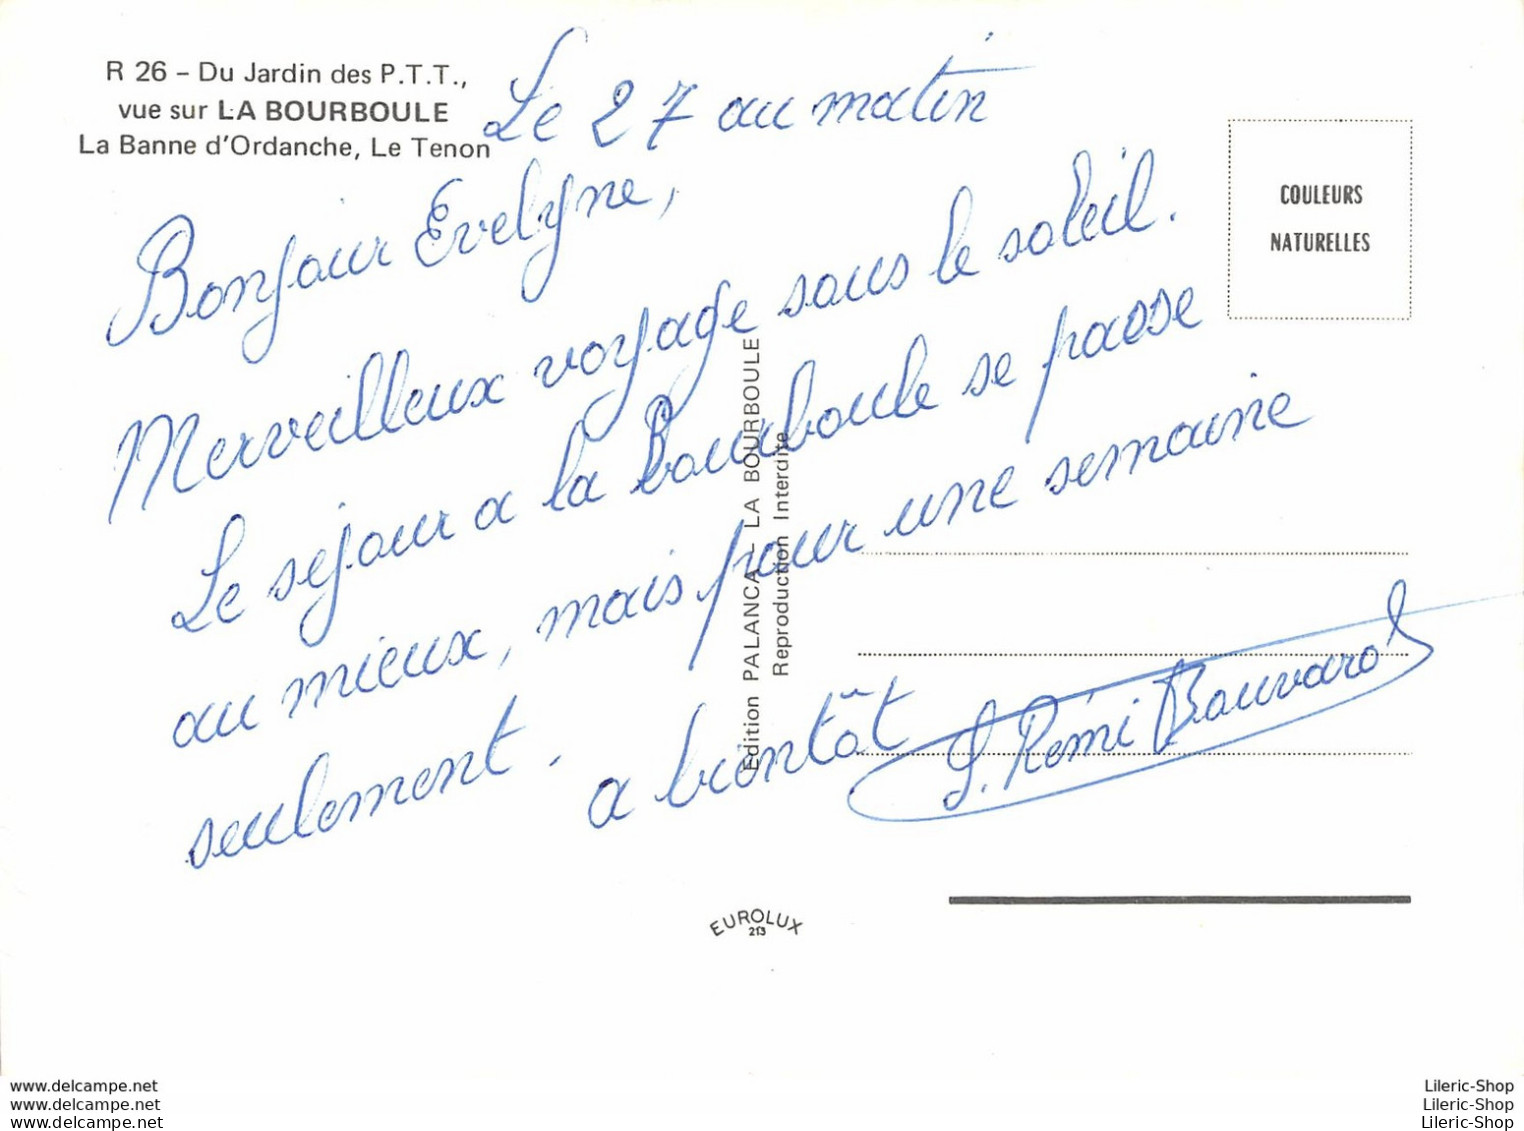 R 26 – Du Jardin des P.T.T.,
vue sur LA BOURBOULE
La Banne d'Ordanche, Le Tenon
Le 27 au matin
Bonjour Evelyne,
Merveilleux voyage sous le soleil.
Le séjour a la Bourboule se passe
au mieux, mais pour une semaine
seulement.
a bientôt
Rémi
COULEURS
NATURELLES
Edition PALANCA – LA BOURBOULE
Reproduction Interdite
EUROLUX
213
www.delcampe.net
www.delcampe.net
www.delcampe.net
Lileric-Shop
Lileric-Shop
Lileric-Shop